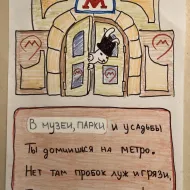 М
М
М
В МУЗЕИ, ПАРКИ И УСАДЬБЫ
ТЫ ДОМЧИШСЯ НА МЕТРО.
НЕТ ТАМ ПРОБОК ЛУЖ И ГРЯЗИ,